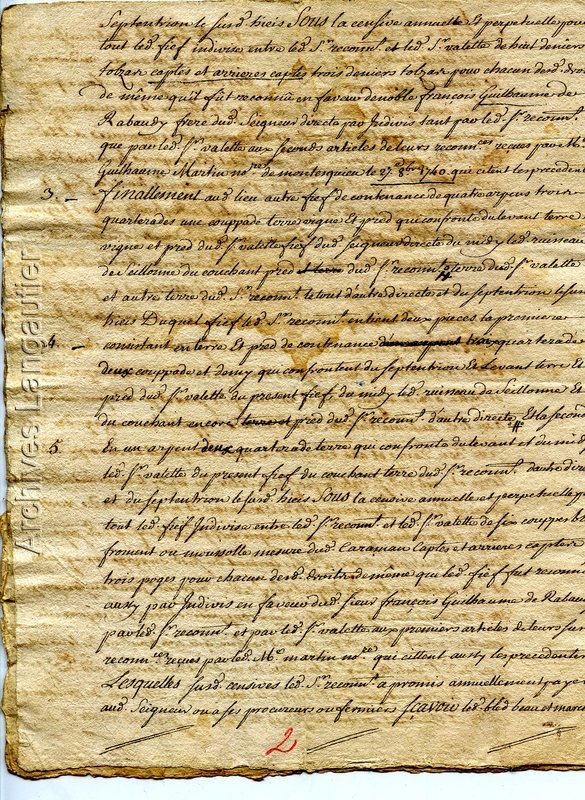 Septentrion le susd. hieis Sous la censive annuelle Et perpetuelle pour
tout led. fief indivise entre led. Sr. reconnt. et led. Sr. valette de huit deniers
tolzas caples et arrieres caples trois deniers tolzas pour chacun desd. droi
de même qu'il fût reconnû en faveur de noble françois Guilhaume de
Rabaudy frere dud. Seigneur directe par Indivis tant par led. Sr. reconnt.
que par led. Sr. valette aux seconds articles de leurs reconnces. recues par Me.
Guilhaume Martin nore. de montesquieu le 27e. 8bre 1740. qui citent les precedent
3. - finallement aud. lieu autre fief de contenance de quatre arpens trois
quarterades une couppade terre vigne Et pred que confronte du levant terre
vigne et pred dud. Sr. valette fief dud. seigneur directe du midy led. ruisseau
de Seillonne du couchant pred et terre dud. Sr. reconnt. terre dud. Sr. valette
et autre terre dud. Sr. reconnt. le tout d'autre directe et du septentrion le sus
hieis Duquel fief led. Sr. reconnt. en tient deux pieces la premiere
4. - consistant en terre Et pred de contenance quarterade
deux couppade et demy qui confrontent du septentrion Et Levant terre Et
pred dud. Sr. valette du present fief, du midy led. ruisseau de Seillonne Et
du couchant encore terre et pred dud. Sr. reconnt. d'autre directe Et la secon
5. En un arpent deux quarterade terre qui confronte du levant et du midy
led. Sr. valette du present fief du couchant terre dud. Sr. reconnt. d'autre dire
et du septentrion le susd. hieis Sous la censive annuelle et perpetuelle p
tout led. fief Indivise entre led. Sr. reconnt. et led. Sr. valette de six couppes b
froment ou moussolle mesure dud. Caraman Caples et arrieres caples
trois poges pour chacun desd. droits de même que led. fief fut reconn
aussy par Indivis en faveur dud. sieur françois Guilhaume de Rabau
par led. Sr. reconnt. et par led. Sr. valette aux premiers articles de leurs sus
reconnces. reçues par led. Me. martin nore. qui cittent aussy les precedente
Lesquelles susd. censives led. Sr. reconnt. a promis annuellement paye
aud. Seigneur ou a ses procureurs ou fermiers sçavoir led. bled beau et march
2
Archives Langautier